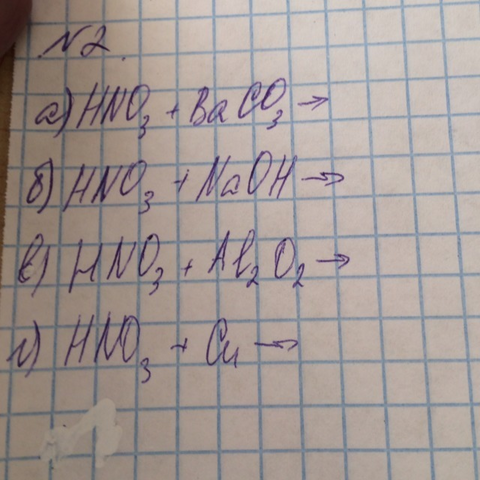 N2.
а) HNO3 + BaCO3 →
б) HNO3 + NaOH →
в) HNO3 + Al2O2 →
г) HNO3 + Cu →